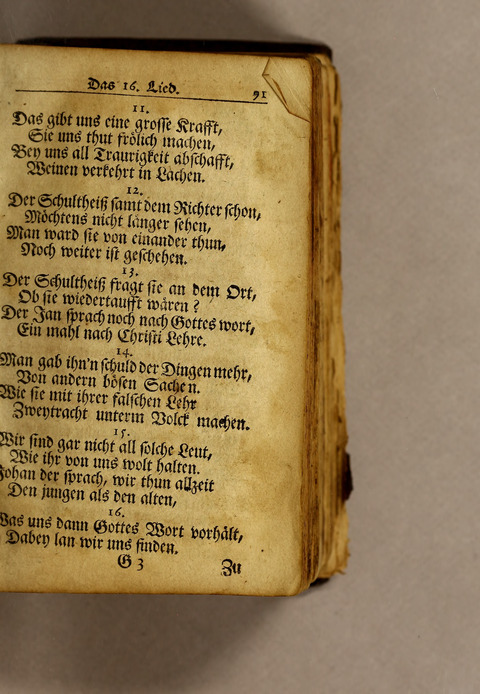 Das 16. Lied.
91
11.
Das gibt uns eine grosse Krafft,
Sie uns thut frölich machen,
Bey uns all Traurigkeit abschafft,
Weinen verkehrt in Lachen.
12.
Der Schultheiß samt dem Richter schon,
Möchtens nicht länger sehen,
Man ward sie von einander thun,
Noch weiter ist geschehen.
13.
Der Schultheiß fragt sie an dem Ort,
Ob sie wiedertaufft wären?
Der Jan sprach noch nach Gottes wort,
Ein mahl nach Christi Lehre.
14.
Man gab ihn'n schuld der Dingen mehr,
Von andern bösen Sachen.
Wie sie mit ihrer falschen Lehr
Zweytracht unterm Volck machen.
15.
Wir sind gar nicht all solche Leut,
Wie ihr von uns wolt halten.
Johan der sprach, wir thun allzeit
Den jungen als den alten,
16.
Was uns dann Gottes Wort vorhält,
Dabey lan wir uns finden.
G 3
Zu